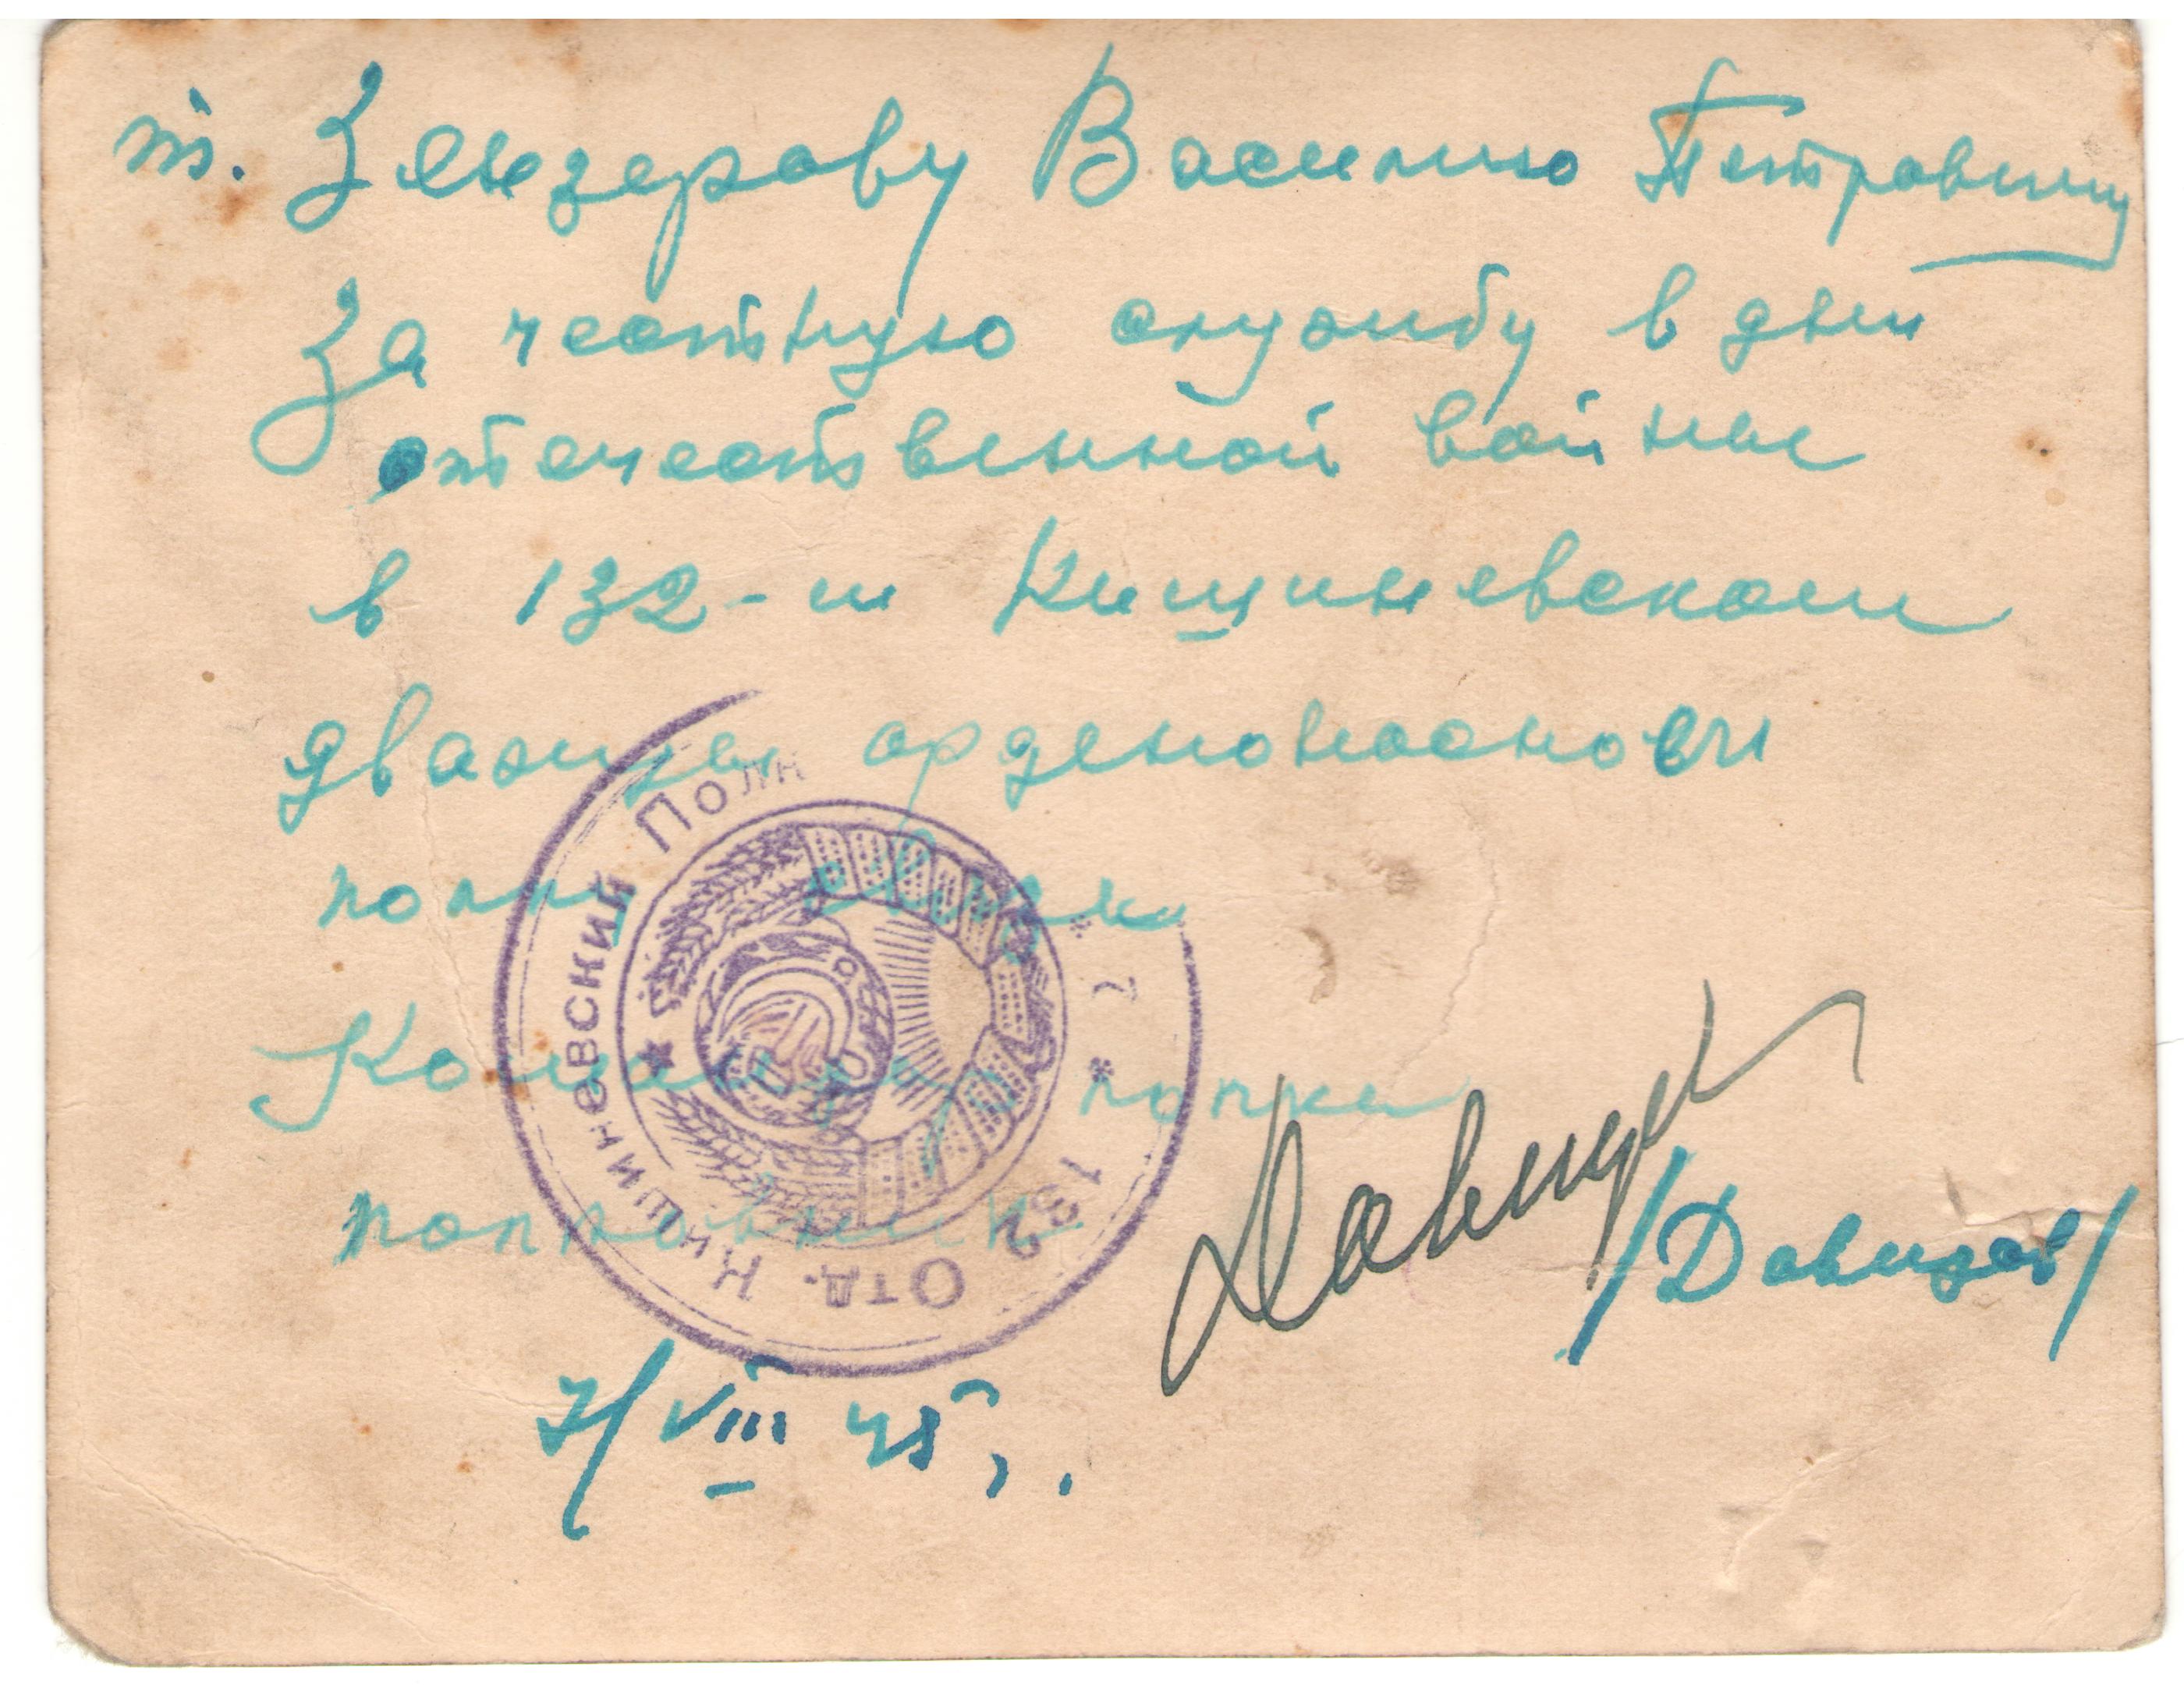 т. Зензерову Василию Петровичу
За честную службу в дни
отечественной войны
в 132-м Кишиневском
дважды орденоносном
полку связи
Командир полка
полковник
/Давидов/
7/VIII 45 г.
132 Отд. Кишинёвский Полк